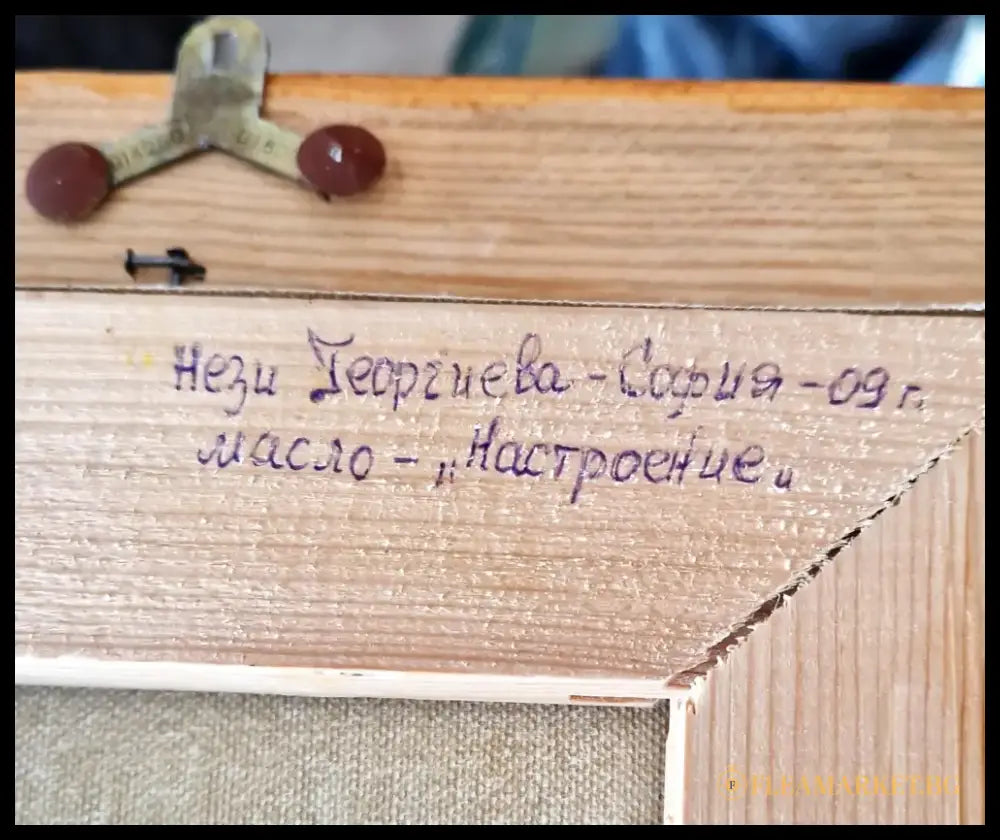 Нези Георгиева - София - 09 г.
масло - „Настроение"
FLEAMARKET.BG